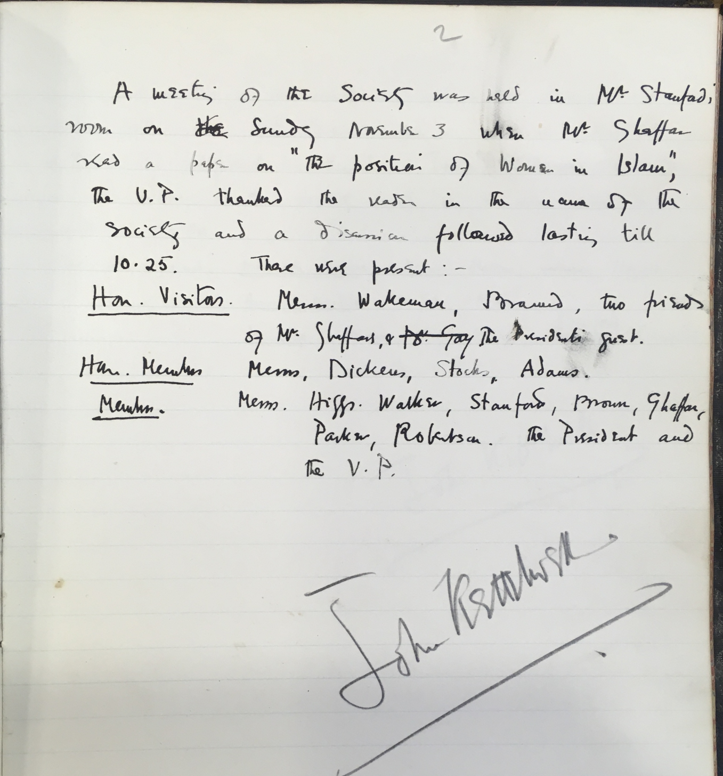 2
A meeting of the Society was held in Mr. Stanford's
room on the Sunday November 3 when Mr. Ghaffar
read a paper on "The position of Women in Islam",
the V.P. thanked the reader in the name of the
Society and a discussion followed lasting till
10.25. There were present :-
Hon. Visitors. Messrs. Wakeman, two friends
of Mr. Ghaffar's, & the President's guest.
Hon. Members Messrs, Dickens, Stocks, Adams.
Members. Messrs. Higgs. Walker, Stanford, Brown, Ghaffar,
Parker, Robertson. the President and
the V.P.
John